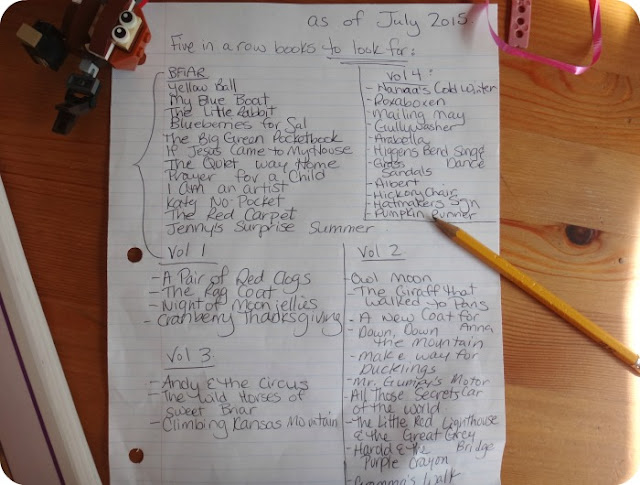 as of July 2015.
Five in a row books to look for:
BFIAR
Yellow Ball
My Blue Boat
The Little Rabbit
Blueberries for Sal
The Big Green Pocketbook
If Jesus Came to My House
The Quiet Way Home
Prayer for a Child
I am an artist
Katy No-Pocket
The Red Carpet
Jenny's Surprise Summer
Vol 4:
- Nanaa's Cold Winter
- Roxaboxen
- Mailing May
- Gullywasher
- Arabella
- Higgens Bend Song &
Dance
Sandals
- Albert
- Hickory Chair
- Hatmakers Sign
- Pumpkin Runner
Vol 1
- A Pair of Red Clogs
- The Rag Coat
- Night of Moonjellies
- Cranberry Thanksgiving
Vol 3
- Andy & the Circus
- The Wild Horses of
Sweet Briar
- Climbing Kansas Mountain
Vol 2
- Owl Moon
The Giraff that
walked to Paris
- A New Coat for
Anna
- Down, Down
the mountain
- make way for
Ducklings
- Mr. Gumpy's Motor
Car
- All Those Secrets
of the world
- The Little Red Lighthouse
& the Great Grey
Bridge
- Harold & the
Purple Crayon
Walk